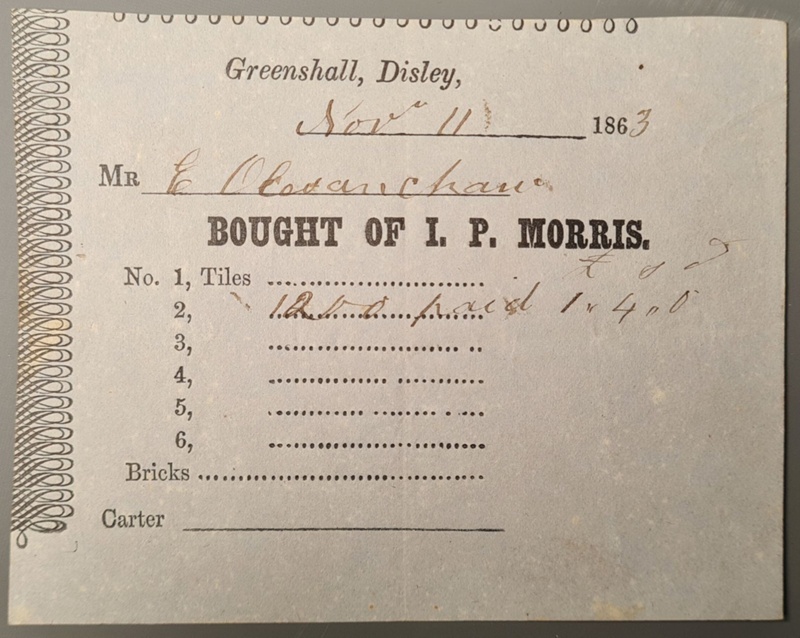 Greenshall, Disley,
Novr 11 1863
MR E
BOUGHT OF I. P. MORRIS.
£ s d
No. 1, Tiles
2, 1200 paid 1 " 4 " 0
3,
4,
5,
6,
Bricks
Carter